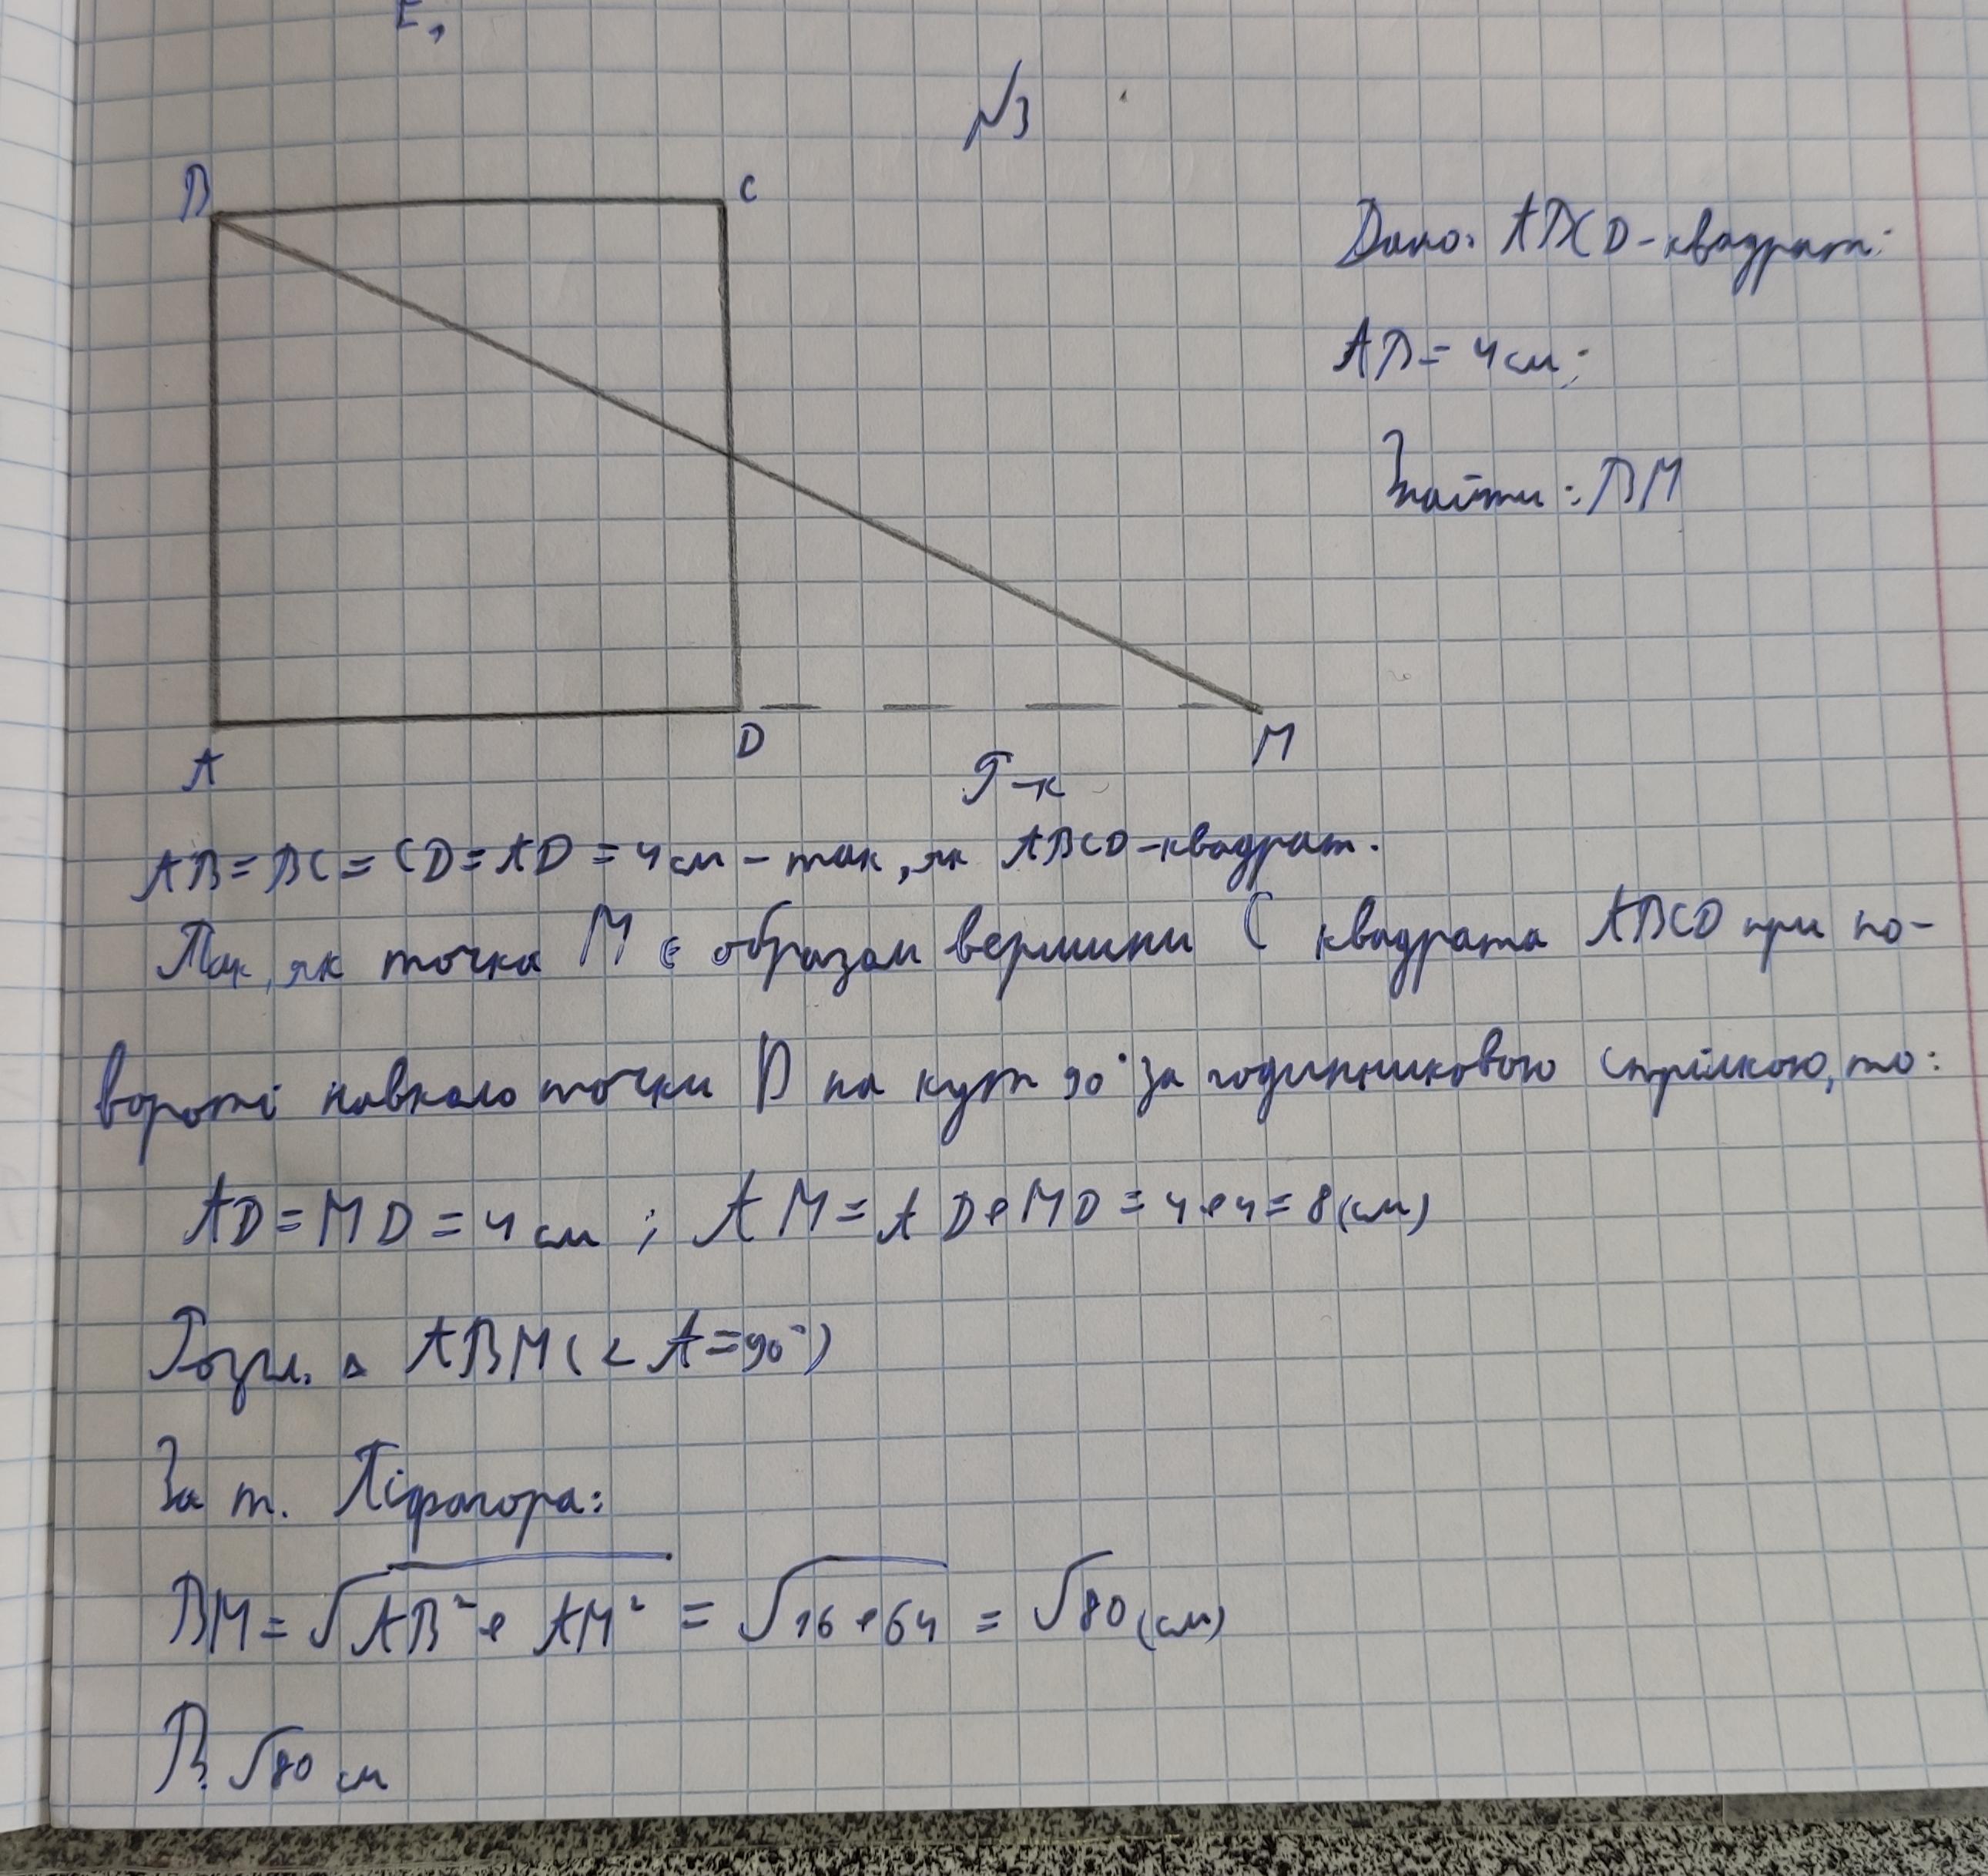 E,
№3
B
C
Дано: ABCD-квадрат:
AB = 4 см;
Знайти: BM
A
D
M
Р-к
AB = BC = CD = AD = 4 см - так, як ABCD-квадрат.
Так, як точка M є образом вершини C квадрата ABCD при по-
вороті навколо точки D на кут 90° за годинниковою стрілкою, то:
AD = MD = 4 см ; AM = AD + MD = 4 + 4 = 8 (см)
Розгл. △ ABM (< A = 90°)
За т. Піфагора:
BM = √AB² + AM² = √16 + 64 = √80 (см)
В. √80 см